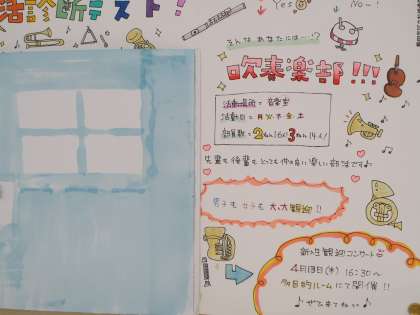 活診断テスト!
Yes
No〜!
そんな あなたには…!?
吹奏楽部!!!
活動場所＝音楽室
活動日＝月火木金土
部員数＝2年生16人3年生14人!
先輩も後輩もとっても仲の良い楽しい部活です♪
男子も女子も大大歓迎!!
新入生歓迎コンサート
4月13日(木) 16:30〜
多目的ルームにて開催!!
♪ぜひ来てね♪